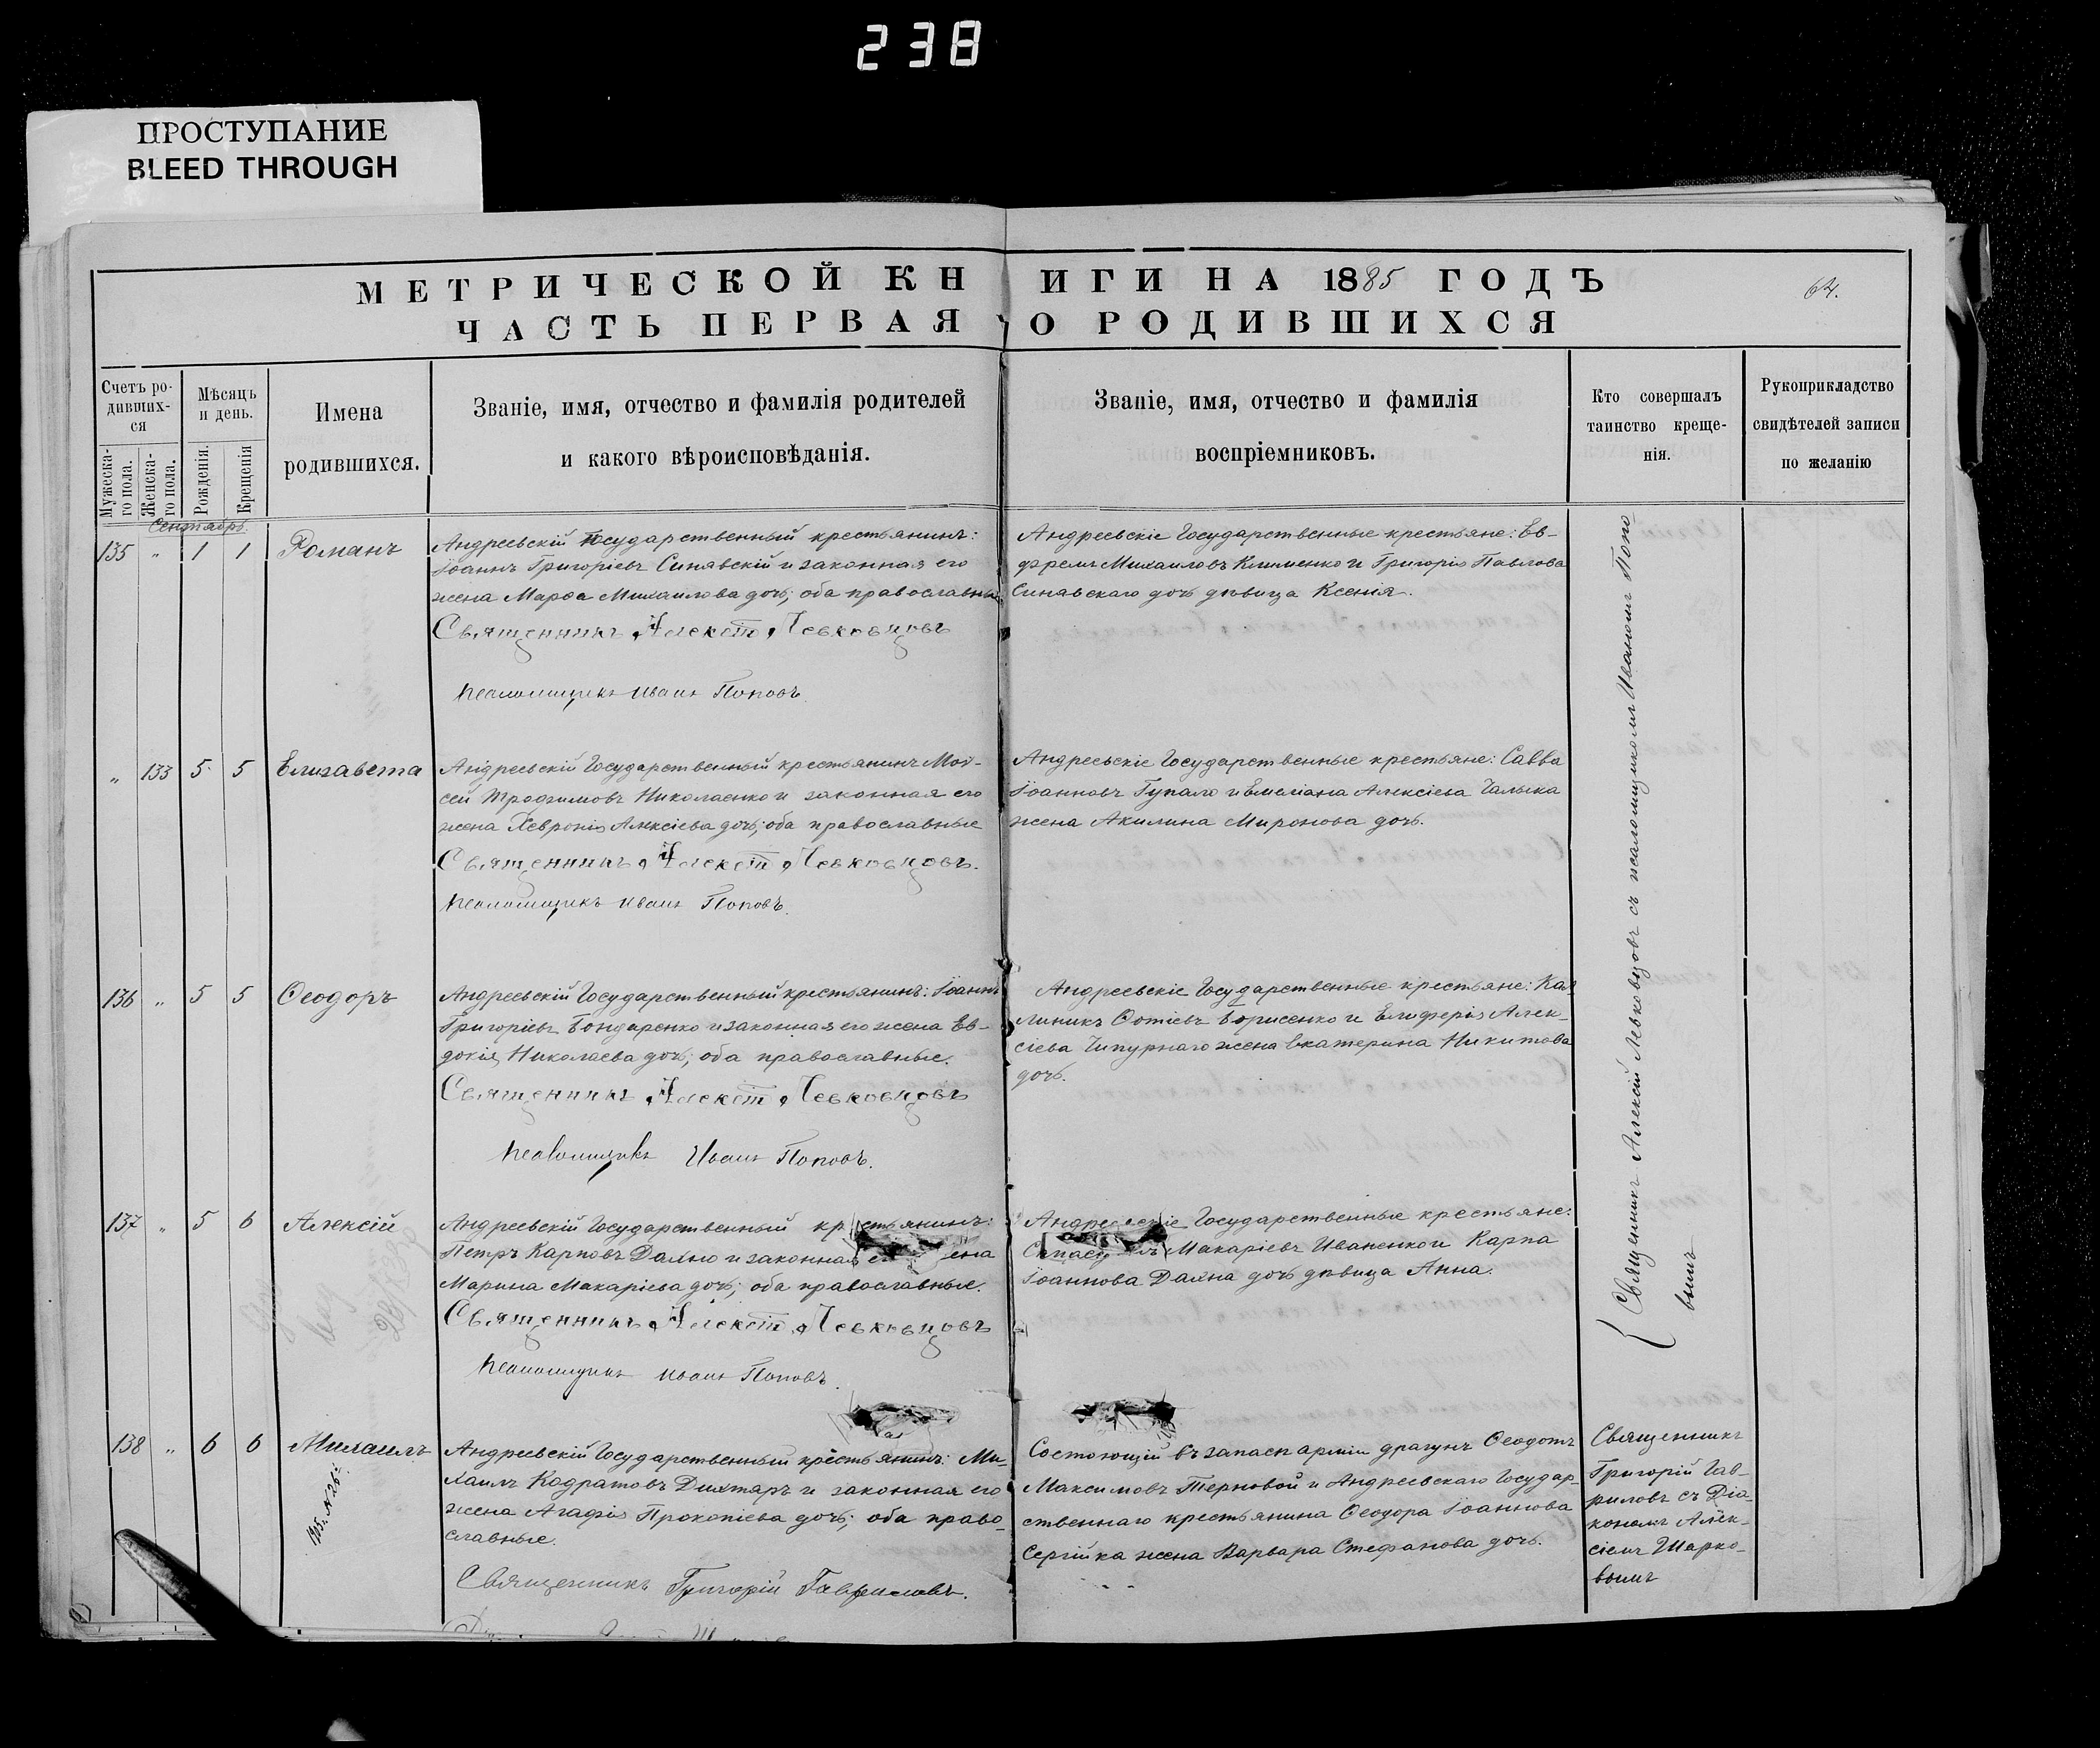 238
ПРОСТУПАНИЕ
BLEED THROUGH
МЕТРИЧЕСКОЙ КНИГИ НА 1885 ГОДЪ
64.
ЧАСТЬ ПЕРВАЯ О РОДИВШИХСЯ
Счетъ ро-
дивших-
ся
Мужеска-
го пола.
Женска-
го пола.
Мѣсяцъ
и день.
Рожденія.
Крещенія
Имена
родившихся.
Званіе, имя, отчество и фамилія родителей
и какого вѣроисповѣданія.
Званіе, имя, отчество и фамилія
воспріемниковъ.
Кто совершалъ
таинство креще-
нія.
Рукоприкладство
свидѣтелей записи
по желанію
Сентябрь.
135 " 1 1 Романъ
Андреевскій Государственный крестьянинъ:
Іоаннъ Григоріевъ Синявскій и законная его
жена Марѳа Михаилова дочь; оба православные
Священникъ Алексій Левковцовъ
Псаломщикъ Иванъ Поповъ.
Андреевскіе Государственные крестьяне: Ев-
фремъ Михаиловъ Клименко и Григорія Павлова
Синявскаго дочь дѣвица Ксенія.
" 133 5 5 Елизавета
Андреевскій Государственный крестьянинъ Мої-
сей Трофимовъ Николаенко и законная его
жена Хевронія Алексіева дочь; оба православные
Священникъ Алексій Левковцовъ.
Псаломщикъ Иванъ Поповъ.
Андреевскіе Государственные крестьяне: Савва
Іоанновъ Гупало и Емеліана Алексіева Чалыка
жена Акилина Миронова дочь.
136 " 5 5 Ѳеодоръ
Андреевскій Государственный крестьянинъ: Іоаннъ
Григоріевъ Бондаренко и законная его жена Ев-
докія Николаева дочь; оба православные.
Священникъ Алексій Левковцовъ
Псаломщикъ Иванъ Поповъ.
Андреевскіе Государственные крестьяне: Кал-
линикъ Ѳотіевъ Борисенко и Елиферія Алек-
сіева Чипурнаго жена Екатерина Никитова
дочь.
137 " 5 6 Алексій
Андреевскій Государственный крестьянинъ:
Петръ Карповъ Даяно и законная его жена
Марина Макаріева дочь; оба православные.
Священникъ Алексій Левковцовъ
Псаломщикъ Иванъ Поповъ.
Андреевскіе Государственные крестьяне:
Макаріевъ Иваненко и Карпа
Іоаннова Даяна дочь дѣвица Анна.
Священникъ Алексій Левковцовъ съ псаломщикомъ Иваномъ Попо
вымъ
138 " 6 6 Михаилъ
1905. № 26.
Андреевскій Государственный крестьянинъ: Ми-
хаилъ Кодратовъ Дихтяръ и законная его
жена Агафія Прокопіева дочь; оба право-
славные.
Священникъ Григорій Гавриловъ.
Состоющій въ запасѣ арміи драгунъ Ѳеодотъ
Максимовъ Терновой и Андреевскаго Государ-
ственнаго крестьянина Ѳеодора Іоаннова
Сергійка жена Варвара Стефанова дочь.
Священникъ
Григорій Гав-
риловъ съ Діа-
кономъ Алек-
сіемъ Шарко-
вымъ